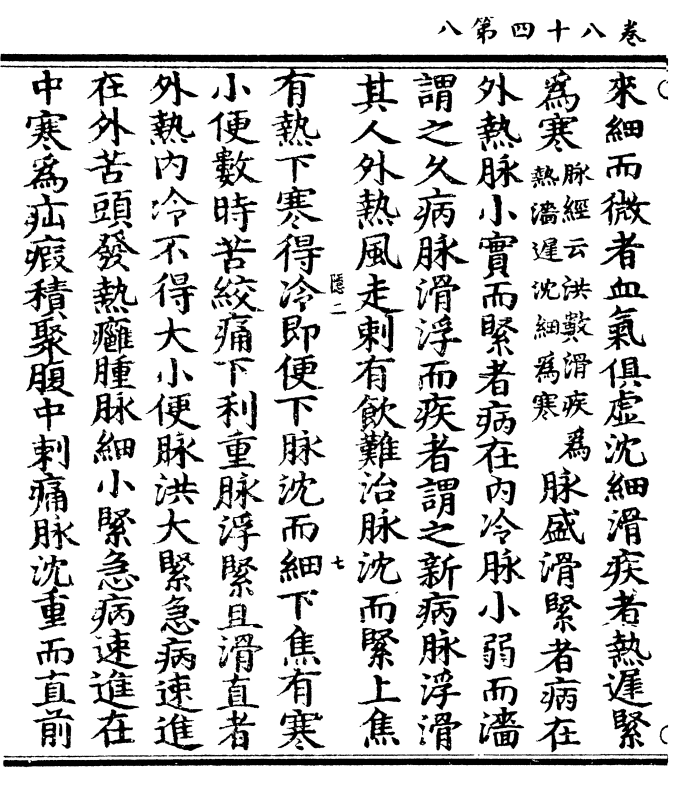 卷八十四第八
來細而微者血氣俱虛沈細滑疾者熱遲緊
爲寒脉經云洪數滑疾爲熱濇遲沈細爲寒脉盛滑緊者病在
外熱脉小實而緊者病在内冷脉小弱而濇
謂之久病脉滑浮而疾者謂之新病脉浮滑
其人外熱風走刺有飲難治脉沈而緊上焦
隱二
七
有熱下寒得冷即便下脉沈而細下焦有寒
小便數時苦絞痛下利重脉浮緊且滑直者
外熱内冷不得大小便脉洪大緊急病速進
在外苦頭發熱癰腫脉細小緊急病速進在
中寒爲疝瘕積聚腹中刺痛脉沈重而直前